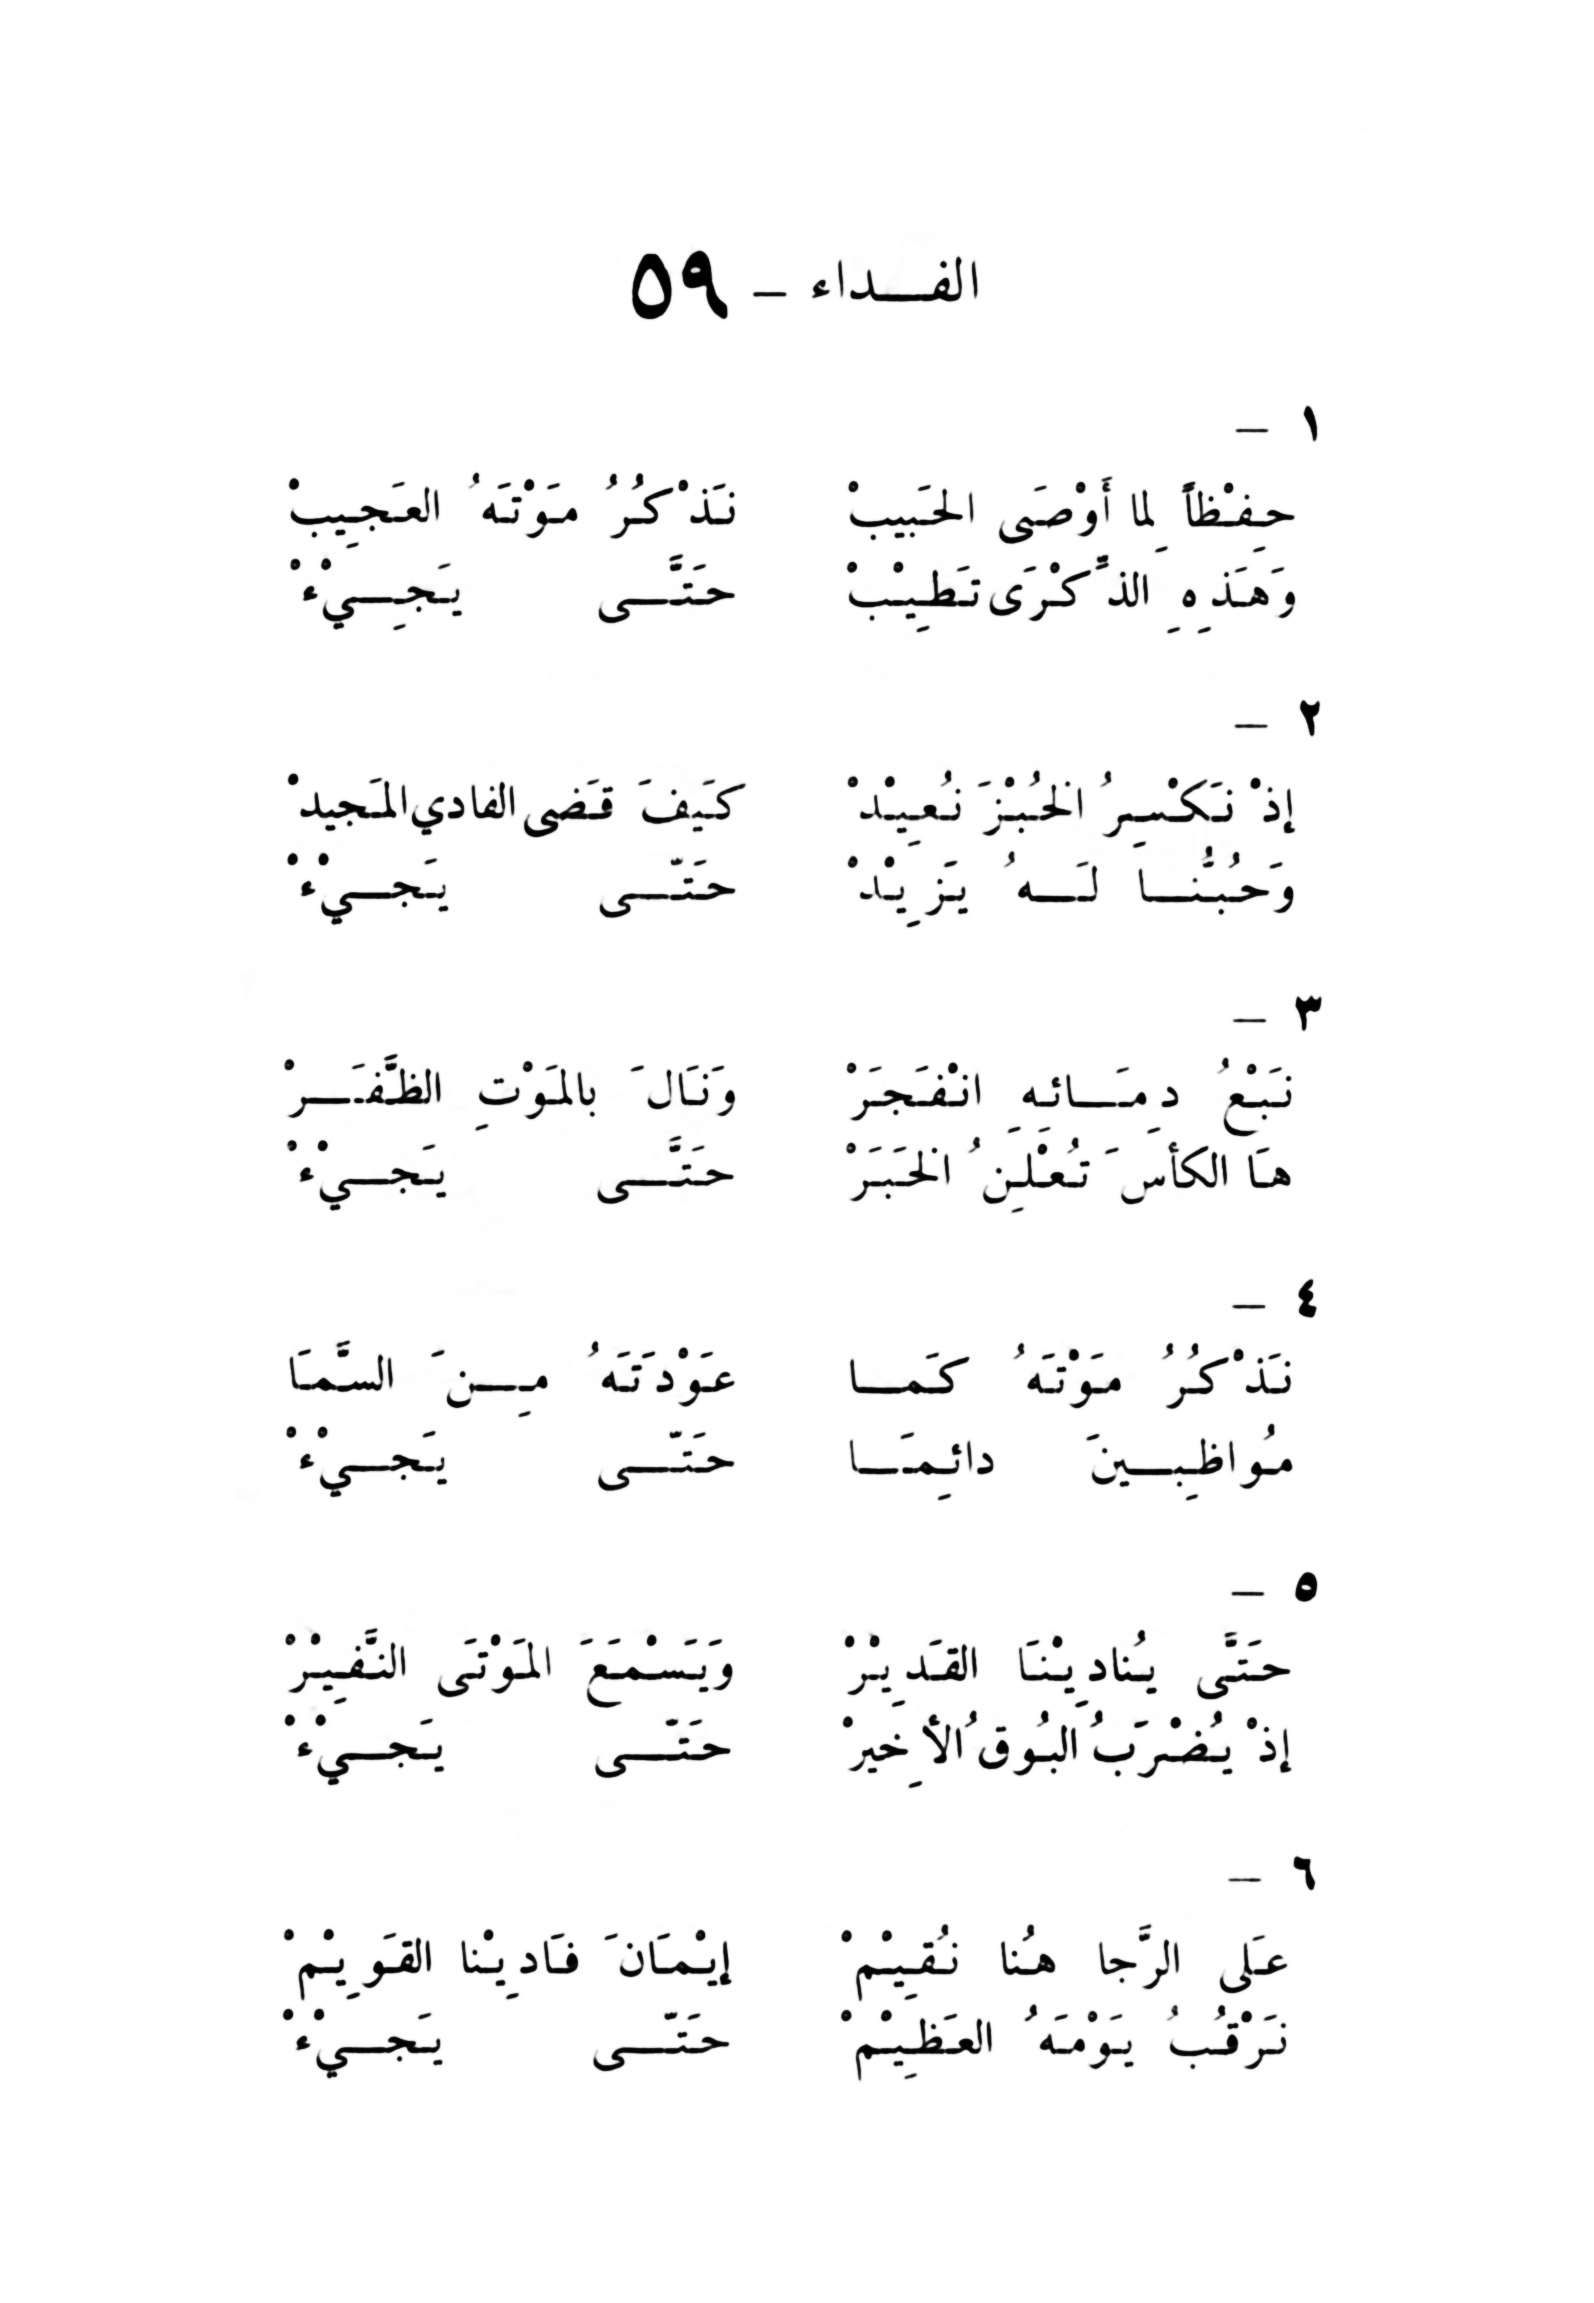 الفداء - ٥٩
١ -
حِفْظاً لِما أَوْصَى الحَبيبْ نَذْكُرُ مَوْتَهُ العَجِيبْ
وَهَذِهِ الذِّكْرَى تَطِيْبْ حَتَّى يَجِيْءْ
٢ -
إذْ نَكْسِرُ الخُبْزَ نُعِيْدْ كَيفَ قَضى الفادي المَجيدْ
وَحُبُّنا لَهُ يَزِيْدْ حَتّى يَجيْءْ
٣ -
نَبْعُ دِمَائِهِ انْفَجَرْ وَنَالَ بالمَوْتِ الظَّفَرْ
هَا الكأسَ تُعْلِنُ الخَبَرْ حَتَّى يَجيْءْ
٤ -
نَذْكُرُ مَوْتَهُ كَما عَوْدَتَهُ مِنَ السَّمَا
مُواظِبينَ دائِمَا حَتّى يَجيْءْ
٥ -
حَتَّى يُنادِيْنَا القَدِيْرْ وَيَسْمَعَ المَوْتَى النَّفِيْرْ
إذْ يُضْرَبُ البُوقُ الأخِيرْ حَتّى يَجيْءْ
٦ -
عَلى الرَّجا هُنا نُقِيْمْ إيْمَانَ فَادِيْنا القَوِيْمْ
نَرْقُبُ يَوْمَهُ العَظِيْمْ حَتّى يَجيْءْ